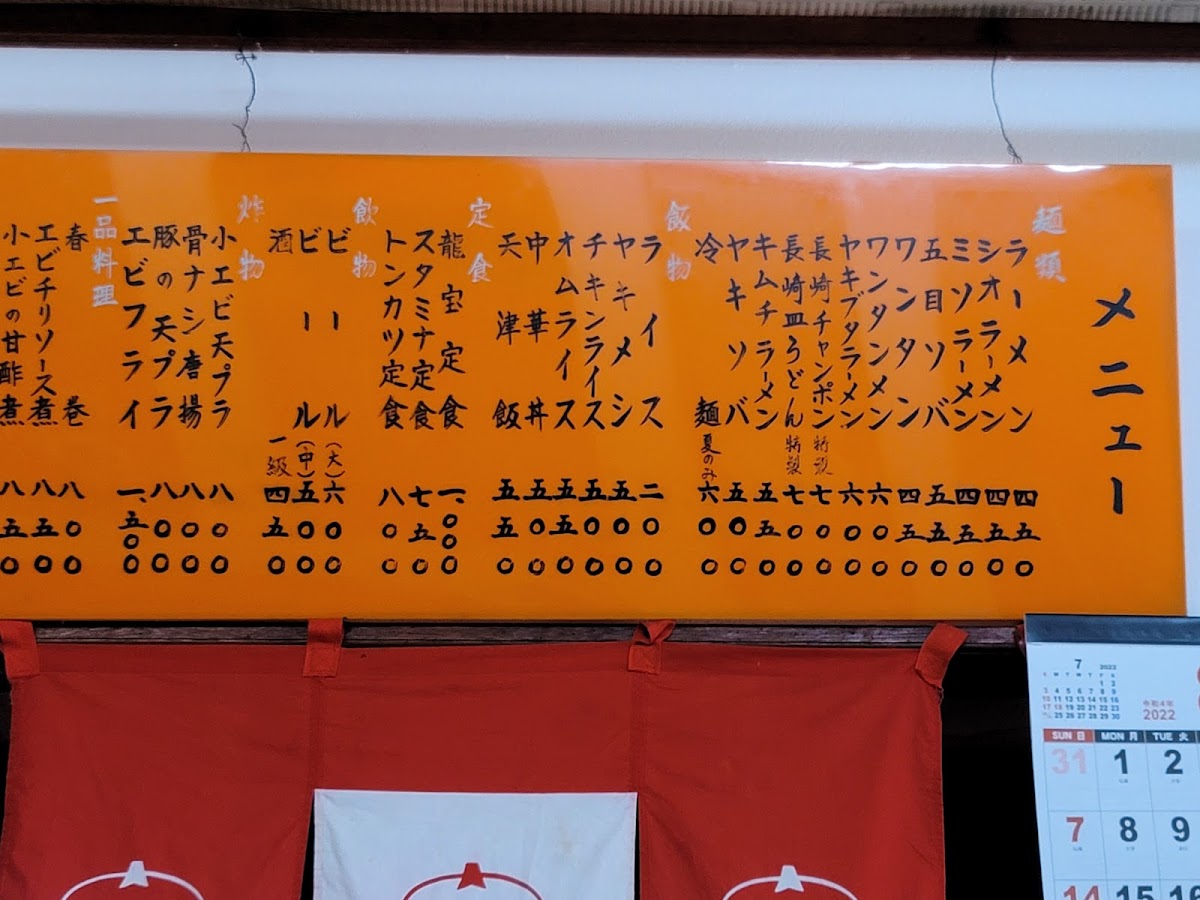 メニュー
麺類
ラーメン 四五〇
シオラーメン 四五〇
ミソラーメン 四五〇
五目ソバ 五五〇
ワンタン 四五〇
ワンタンメン 六〇〇
ヤキブタラーメン 六〇〇
長崎チャンポン 特製 七〇〇
長崎皿うどん 特製 七〇〇
キムチラーメン 五五〇
ヤキソバ 五〇〇
冷麺 夏のみ 六〇〇
飯物
ライス 二〇〇
ヤキメシ 五〇〇
チキンライス 五〇〇
オムライス 五五〇
中華丼 五〇〇
天津飯 五五〇
定食
龍宝定食 一、〇〇〇
スタミナ定食 七五〇
トンカツ定食 八〇〇
飲物
ビール (大) 六〇〇
ビール (中) 五〇〇
酒 一級 四五〇
炸物
小エビ天プラ 八〇〇
骨ナシ唐揚 八〇〇
豚の天プラ 八〇〇
エビフライ 一、五〇〇
一品料理
春巻 八〇〇
エビチリソース煮 八五〇
小エビの甘酢煮 八五〇
7 2022
S M T W T F S
1 2
3 4 5 6 7 8 9
10 11 12 13 14 15 16
17 18 19 20 21 22 23
25 26 27 28 29 30
令和4年
2022
SUN 日 MON 月 TUE 火
31 1 2
7 8 9
14 15 16